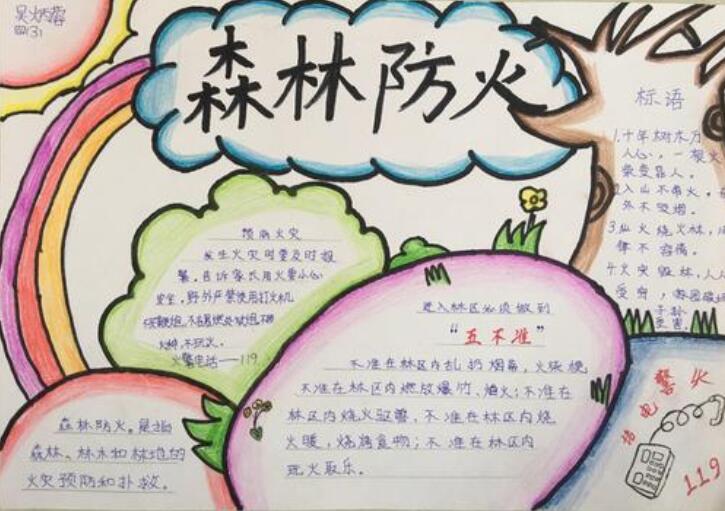 四(3)
森林防火
标语
1.十年树木万
人心，一根火
众受益人。
2.入山不带火，
外不吸烟。
3.纵火烧火林，
律不容情。
4.火灾毁林，人人
受穷，
子孙
受害
预防火灾
发生火灾时要及时报
警，告诉家长用火要小心
安全，野外严禁使用打火机
火种，不玩火。
火警电话——119。
进入林区必须做到
“五不准”
不准在林区内乱扔烟蒂，火柴梗
不准在林区内燃放爆竹，焰火；不准在
林区内烧火驱兽，不准在林区内烧
火暖，烧烤食物；不准在林区内
玩火取乐。
森林防火。是指
森林、林木和林地的
火灾预防和扑救。
火警电话
119